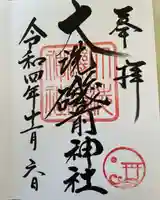 奉拝
大洗磯前神社
令和四年十一月六日